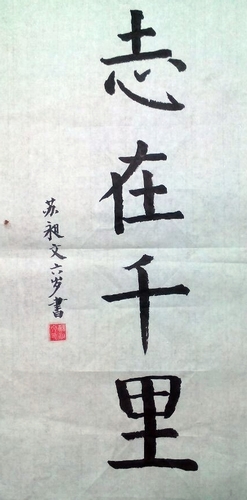 志在千里
苏昶文六岁书